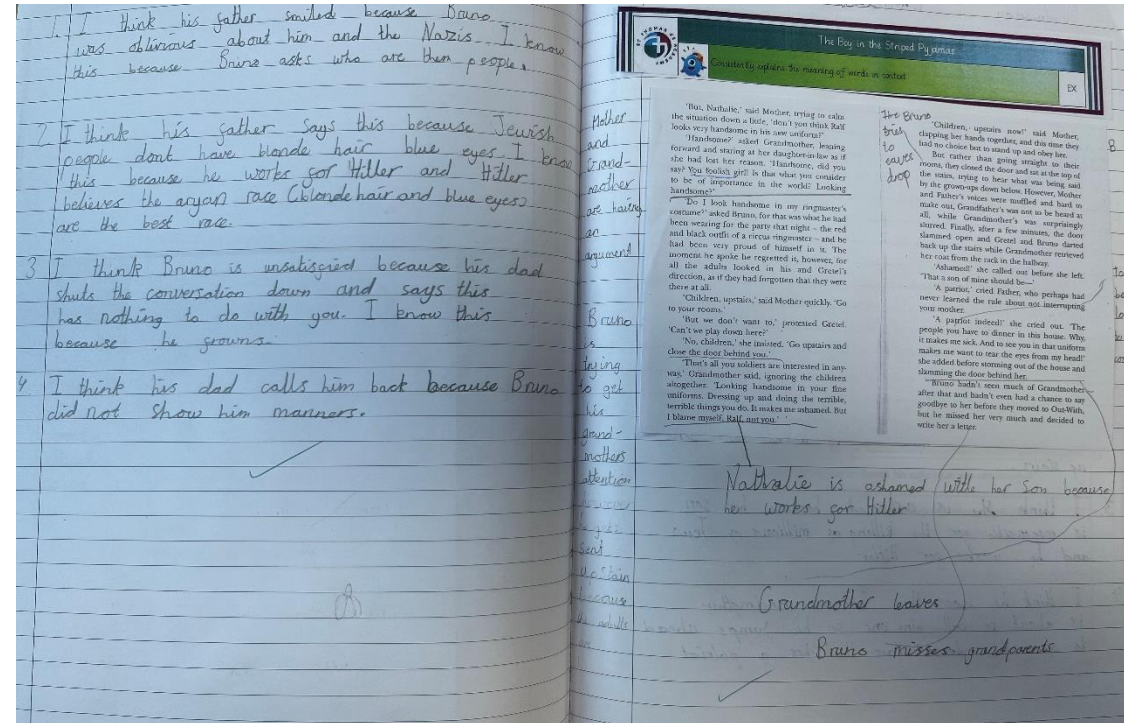 1. I think his father smiled because Bruno
was oblivious about him and the Nazis. I know
this because Bruno asks who are them people.
2 I think his father says this because Jewish
people dont have blonde hair blue eyes. I know
this because he works for Hitler and Hitler
believes the aryan race (blonde hair and blue eyes)
are the best race.
3 I think Bruno is unsatisfied because his dad
shuts the conversation down and says this
has nothing to do with you. I know this
because he frowns.
4 I think his dad calls him back because Bruno
did not show him manners.
Mother
and
Grand-
mother
are having
an
argument
Bruno
is
trying
to get
his
grand-
mothers
attention
sent
because
adults
The Boy in the Striped Pyjamas
Consistently explains the meaning of words in context
EX
'But, Nathalie,' said Mother, trying to calm
the situation down a little, 'don't you think Ralf
looks very handsome in his new uniform?'
'Handsome?' asked Grandmother, leaning
forward and staring at her daughter-in-law as if
she had lost her reason. 'Handsome, did you
say? You foolish girl! Is that what you consider
to be of importance in the world? Looking
handsome?'
'Do I look handsome in my ringmaster's
costume?' asked Bruno, for that was what he had
been wearing for the party that night – the red
and black outfit of a circus ringmaster – and he
had been very proud of himself in it. The
moment he spoke he regretted it, however, for
all the adults looked in his and Gretel's
direction, as if they had forgotten that they were
there at all.
'Children, upstairs,' said Mother quickly. 'Go
to your rooms.'
'But we don't want to,' protested Gretel.
'Can't we play down here?'
'No, children,' she insisted. 'Go upstairs and
close the door behind you.'
'That's all you soldiers are interested in any-
way,' Grandmother said, ignoring the children
altogether. 'Looking handsome in your fine
uniforms. Dressing up and doing the terrible,
terrible things you do. It makes me ashamed. But
I blame myself, Ralf, not you.'
Bruno
tries
to
eaves
drop
'Children, upstairs now!' said Mother,
clapping her hands together, and this time they
had no choice but to stand up and obey her.
But rather than going straight to their
rooms, they closed the door and sat at the top of
the stairs, trying to hear what was being said
by the grown-ups down below. However, Mother
and Father's voices were muffled and hard to
make out, Grandfather's was not to be heard at
all, while Grandmother's was surprisingly
slurred. Finally, after a few minutes, the door
slammed open and Gretel and Bruno darted
back up the stairs while Grandmother retrieved
her coat from the rack in the hallway.
'Ashamed!' she called out before she left.
'That a son of mine should be—'
'A patriot,' cried Father, who perhaps had
never learned the rule about not interrupting
your mother.
'A patriot indeed!' she cried out. 'The
people you have to dinner in this house. Why,
it makes me sick. And to see you in that uniform
makes me want to tear the eyes from my head!'
she added before storming out of the house and
slamming the door behind her.
Bruno hadn't seen much of Grandmother
after that and hadn't even had a chance to say
goodbye to her before they moved to Out-With,
but he missed her very much and decided to
write her a letter.
Nathalie is ashamed with her son because
her works for Hitler
Grandmother leaves
Bruno misses grandparents